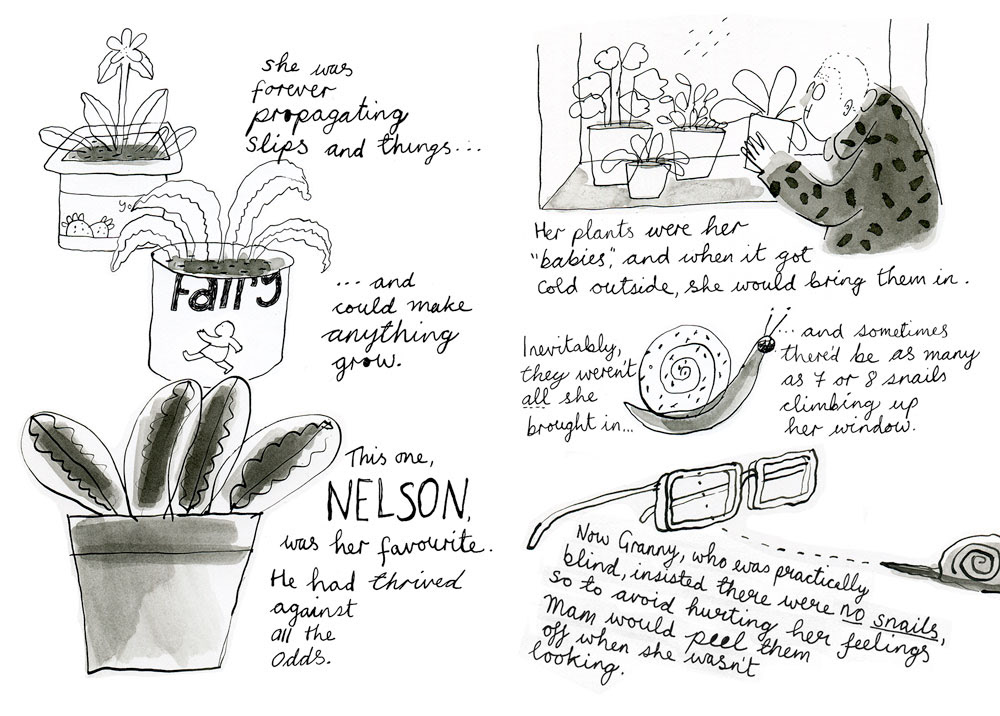 she was
forever
propagating
slips and things...
Fairy
... and
could make
anything
grow.
This one,
NELSON,
was her favourite.
He had thrived
against
all the
odds.
Her plants were her
"babies", and when it got
cold outside, she would bring them in.
Inevitably,
they weren't
all she
brought in...
... and sometimes
there'd be as many
as 7 or 8 snails
climbing up
her window.
Now Granny, who was practically
blind, insisted there were no snails,
so to avoid hurting her feelings
Mam would peel them
off when she wasn't
looking.